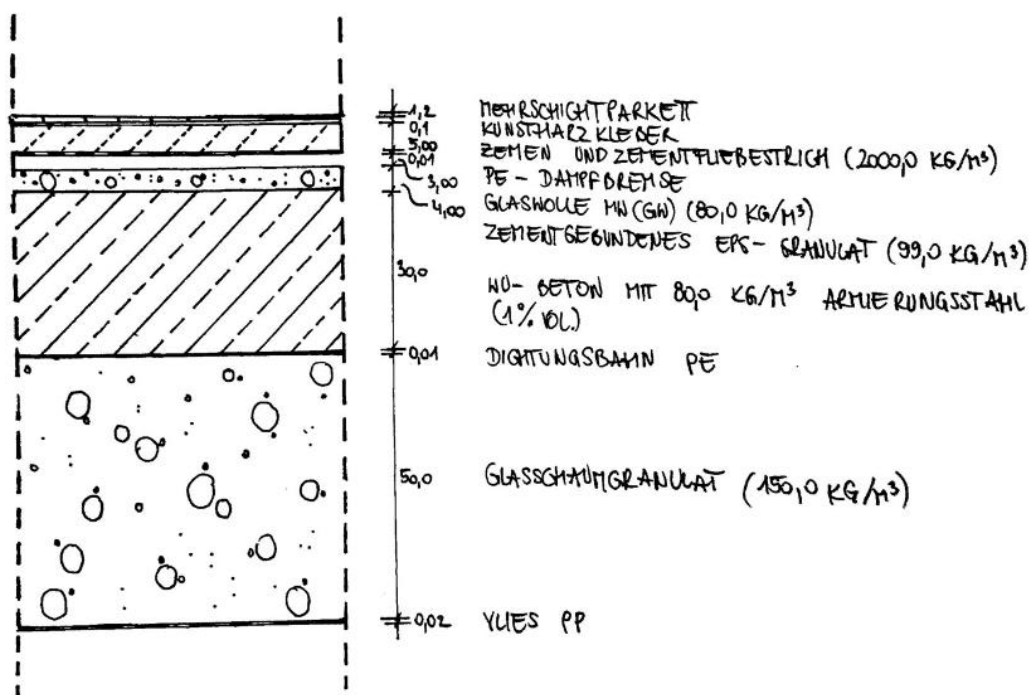 1,2 MEHRSCHICHTPARKETT
0,1 KUNSTHARZKLEBER
5,00 ZEMEN UND ZEMENTFLIEBESTRICH (2000,0 KG/M³)
0,01 PE-DAMPFBREMSE
3,00 GLASWOLLE MW(GW) (80,0 KG/M³)
4,00 ZEMENTGEBUNDENES EPS-GRANULAT (99,0 KG/M³)
30,0 WU-BETON MIT 80,0 KG/M³ ARMIERUNGSSTAHL
(1% VOL.)
0,01 DICHTUNGSBAHN PE
50,0 GLASSCHAUMGRANULAT (150,0 KG/M³)
0,02 VLIES PP